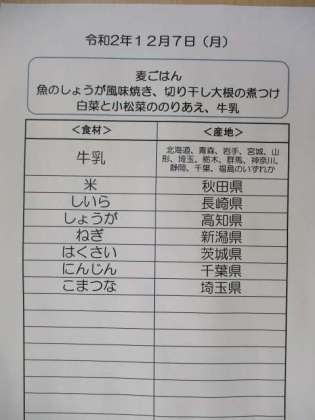 令和2年12月7日（月）
麦ごはん
魚のしょうが風味焼き、切り干し大根の煮つけ
白菜と小松菜ののりあえ、牛乳
＜食材＞ ＜産地＞
牛乳 北海道、青森、岩手、宮城、山
形、埼玉、栃木、群馬、神奈川、
静岡、千葉、福島のいずれか
米 秋田県
しいら 長崎県
しょうが 高知県
ねぎ 新潟県
はくさい 茨城県
にんじん 千葉県
こまつな 埼玉県